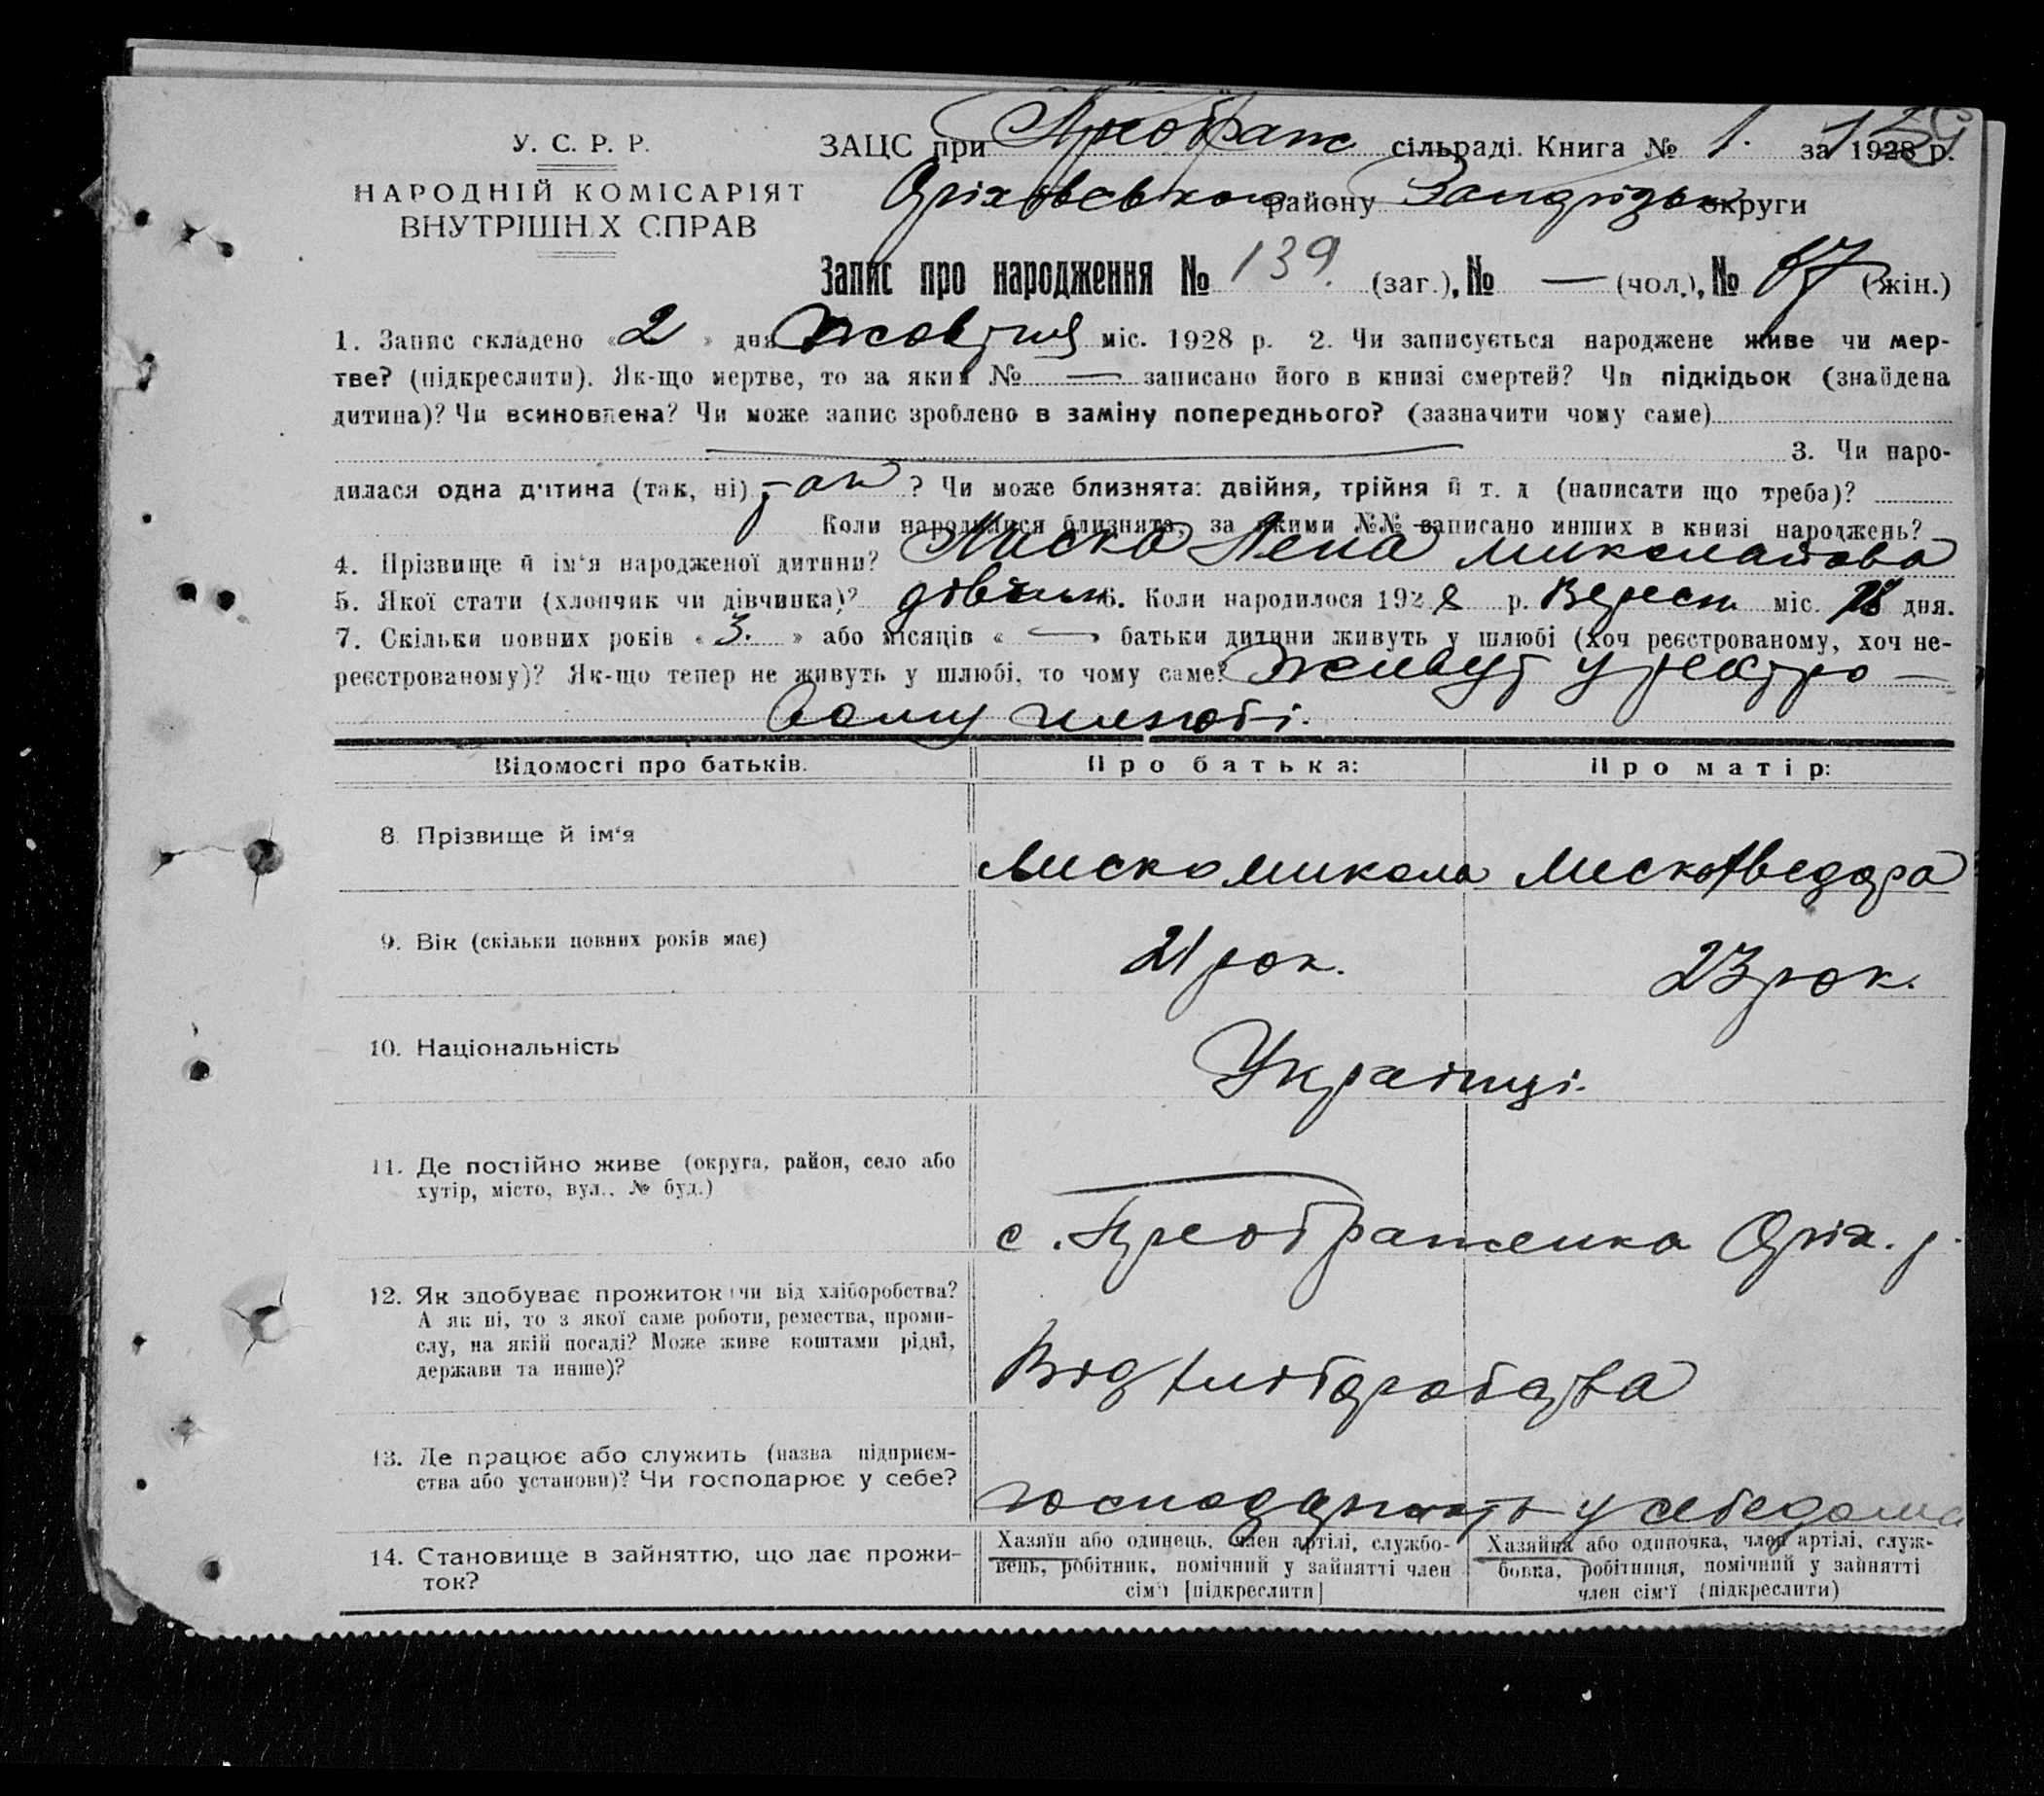 139
У. С. Р. Р.
НАРОДНІЙ КОМІСАРІЯТ
ВНУТРІШНІХ СПРАВ
ЗАЦС при Преображ сільраді. Книга № 1. за 1928 р.
Оріхівського району Запорізьк округи
Запис про народження № 139. (заг.), № — (чол.), № 67 (жін.)
1. Запис складено «2» дня жовтня міс. 1928 р. 2. Чи записується народжене живе чи мер-
тве? (підкреслити). Як-що мертве, то за яким № — записано його в книзі смертей? Чи підкідьок (знайдена
дитина)? Чи всиновлена? Чи може запис зроблено в заміну попереднього? (зазначити чому саме)
3. Чи наро-
дилася одна дитина (так, ні) так ? Чи може близнята: двійня, трійня й т. д (написати що треба)?
Коли народилися близнята, за якими №№ записано инших в книзі народжень?
4. Прізвище й ім'я народженої дитини? Миско Лена миколаївна
5. Якої стати (хлопчик чи дівчинка)? дівчин 6. Коли народилося 1928 р. Вересн міс. 28 дня.
7. Скільки повних років «3.» або місяців « — » батьки дитини живуть у шлюбі (хоч реєстрованому, хоч не-
реєстрованому)? Як-що тепер не живуть у шлюбі, то чому саме? живуть у реєстро-
вому шлюбі.
Відомості про батьків. Про батька: Про матір:
8. Прізвище й ім'я Миско микола Миско Аведора
9. Вік (скільки повних років має) 21 рок. 23 рок.
10. Національність Українці.
11. Де постійно живе (округа, район, село або
хутір, місто, вул., № буд.)
с. Преображенка Оріх. р.
12. Як здобуває прожиток: чи від хліборобства?
А як ні, то з якої саме роботи, ремества, проми-
слу, на якій посаді? Може живе коштами рідні,
держави та инше)?
Від хліборобства
13. Де працює або служить (назва підприєм-
ства або установи)? Чи господарює у себе?
господарюють у себе дома
14. Становище в зайняттю, що дає прожи-
ток?
Хазяїн або одинець, член артілі, службо-
вець, робітник, помічний у зайнятті член
сім'ї [підкреслити]
Хазяйка або одиночка, член артілі, служ-
бовка, робітниця, помічний у зайнятті
член сім'ї (підкреслити)